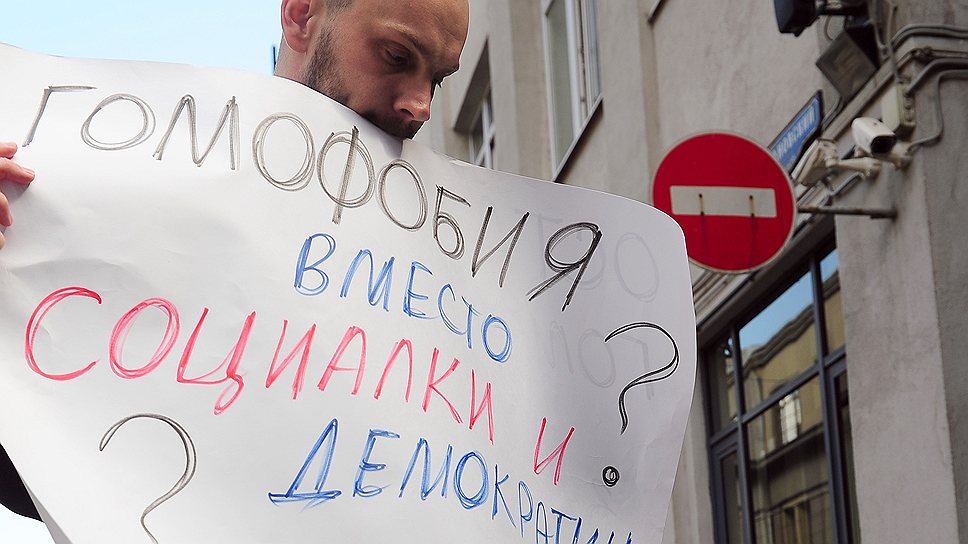 ГОМОФОБИЯ
ВМЕСТО
СОЦИАЛКИ И
ДЕМОКРАТИИ
? ?